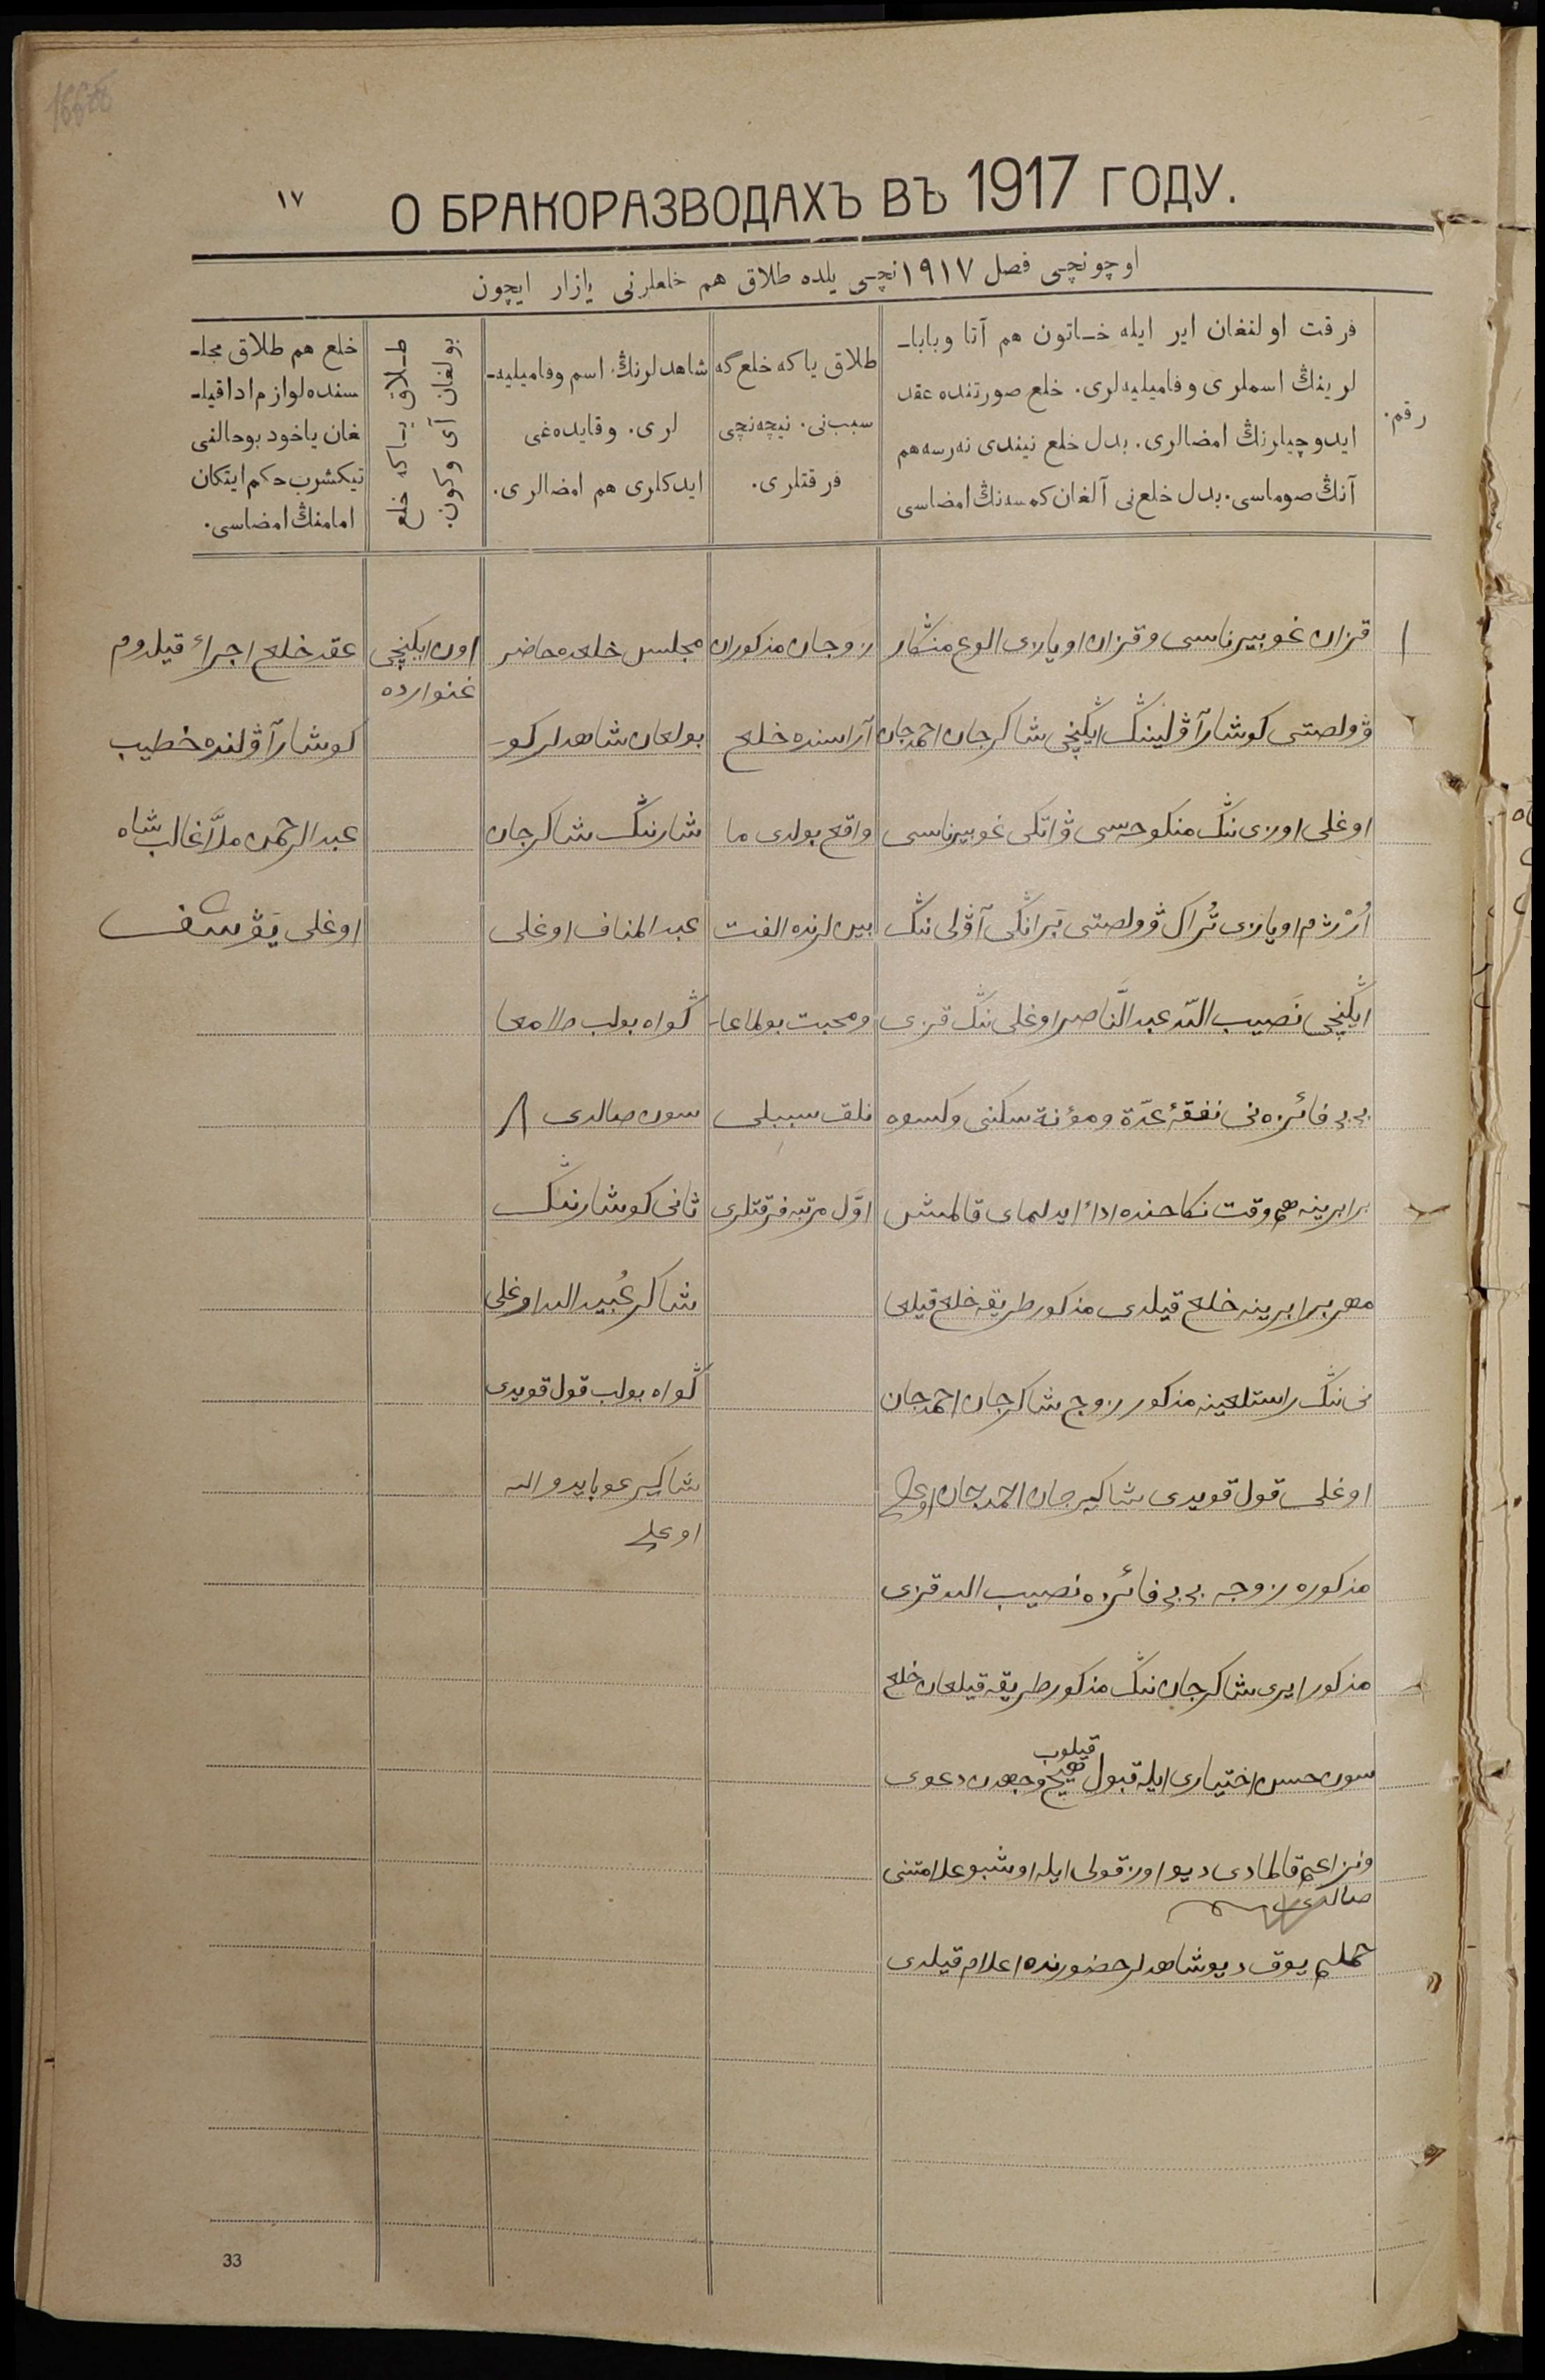 О БРАКОРАЗВОДАХЪ ВЪ 1917 ГОДУ.
١٧
اوچونچى فصل ١٩١٧نچى يلده طلاق هم خلعلرنى يازار ايچون
رقم.
فرقت اولنغان اير ايله خاتون هم آتا وبابا-
لرينڭ اسملرى وفاميليه‌لرى. خلع صورتنده عقد
ايدوچيلرنڭ امضالرى. بدل خلع نيندى نه‌رسه هم
آنڭ صوماسى. بدل خلع‌نى آلغان كمسه‌نڭ امضاسى
طلاق ياكه خلع‌گه
سبب‌نى. نيچه‌نچى
فرقتلرى.
شاهدلرنڭ اسم وفاميليه-
لرى. وقايده‌غى
ايدكلرى هم امضالرى.
طلاق ياكه خلع
بولغان آى وكون.
خلع هم طلاق مجلـ-
سنده لوازم ادا قيلـ-
غان ياخود بوحالنى
تيكشرب حكم ايتكان
امامنڭ امضاسى.
١
قزان غوبيرناسى وقزان اويازى الوع منڭار
ۋولصتى كوشار آۋلينڭ ايڭنچى شاكرجان احمدجان
اوغلى اوزى ننڭ منكوحه‌سى ۋاتكى غوبيرناسى
اُرْژم اويازى تُراك ۋولصتى بَرانڭى آۋلى ننڭ
ايڭنچى نَصيب اللّه عبد النَّاصر اوغلى ننڭ قزى
بى بى فائزه نى نفقۀ عدّة ومؤنة سكنى وكسوه
برابرينه هم وقت نكاحنده اداء ايدلماى قالمش
مهر برابرينه خلع قيلدى مذكور طريقه خلع قيلعا
نى ننڭ راستلعينه مذكور زوج شاكرجان احمدجان
اوغلى قول قويدى شاكيرجان احمدجان اوغلى
مذكوره زوجه بى بى فائزه نصيب الله قزى
مذكور ايرى شاكرجان ننڭ مذكور طريقه قيلعان خلع
سون حسن اختيارى ايله قبول قيلوب هيچ وجهدن دعوى
ونزاعم قالمادى ديو اوز قولى ايله اوشبو علامتنى
صالدى
حملم يوق ديو شاهدلر حضورنده اعلام قيلدى
زوجان مذكوران
آراسنده خلع
واقع بولدى ما
بين لرنده الفت
ومحبت بولماعا-
نلق سببلى
اوَّل مرتبه فرقتلرى
مجلس خلعده حاضر
بولعان شاهدلر كو-
شارننڭ شاكرجان
عبد المناف اوغلى
ڭواه بولب
سون صالدى
ثانى كوشارننڭ
شاكر عُبيد الله اوغلى
ڭواه بولب قول قويدى
شاكير عوبايدوالله
اوغلى
اون ايكنچى
غنوارده
عقد خلع اجراء قيلدوم
كوشار آۋلنده خطيب
عبد الرحمن ملاَّ غالب شاه
اوغلى يَۋشف
33